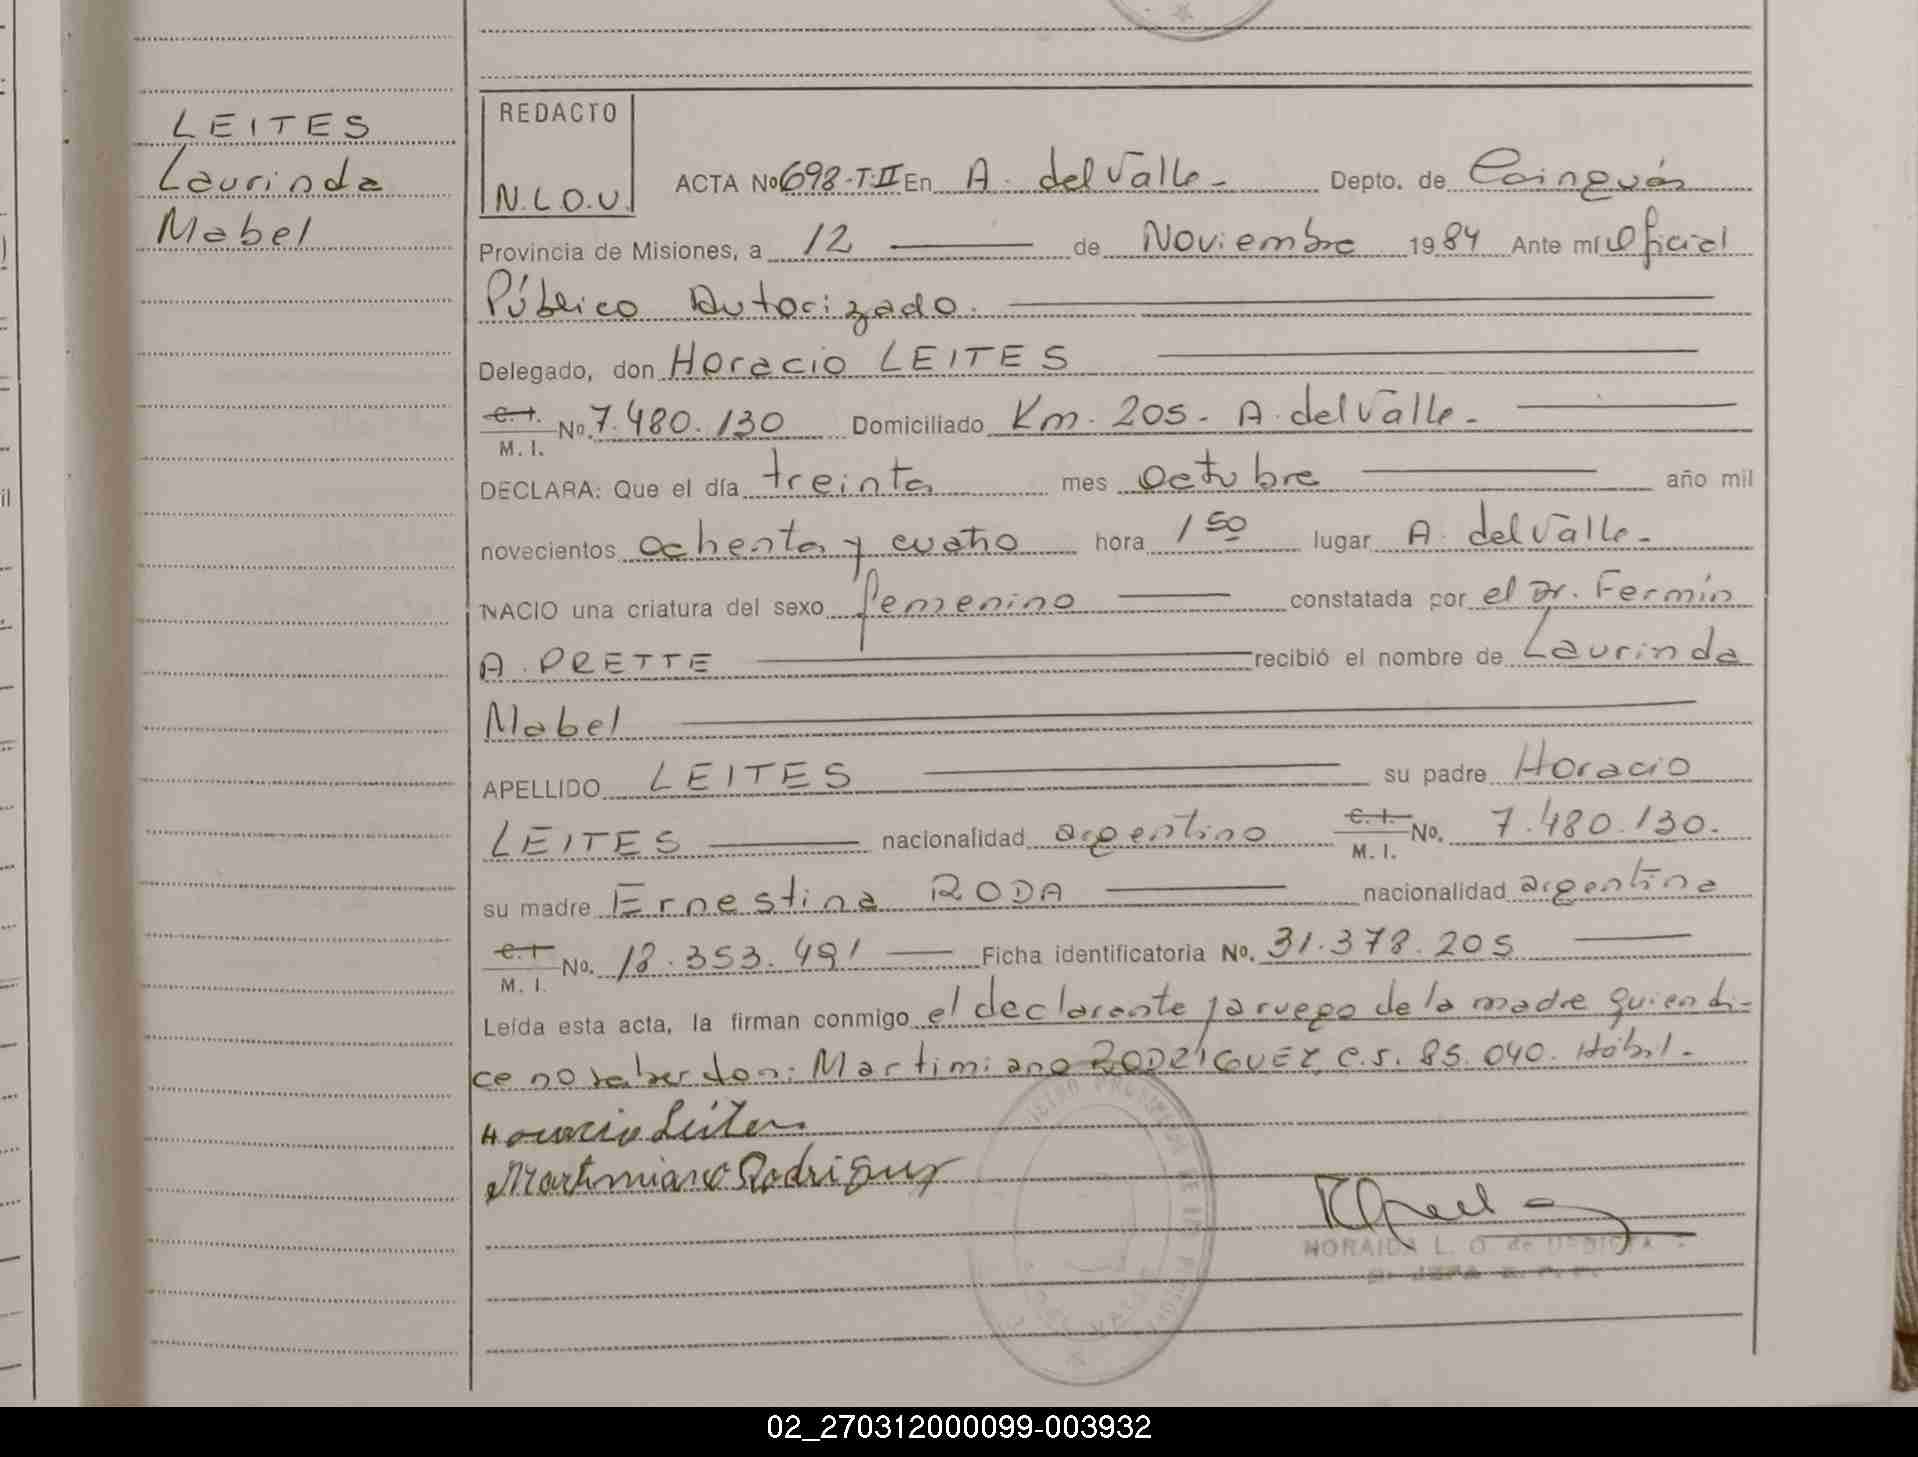 LEITES
Laurinda
Mabel
REDACTO
N.L.O.U.
ACTA Nº 698-T.II En A. del Valle - Depto. de Cainguás
Provincia de Misiones, a 12 de Noviembre 1984 Ante mí Oficial
Público Autorizado.
Delegado, don Horacio LEITES
C. I. M. I. Nº 7.480.130 Domiciliado Km. 205 - A. del Valle. -
DECLARA: Que el día treinta mes octubre año mil
novecientos ochenta y cuatro hora 1 50 lugar A. del Valle. -
NACIO una criatura del sexo femenino constatada por el Dr. Fermín
A. PRETTE recibió el nombre de Laurinda
Mabel
APELLIDO LEITES su padre Horacio
LEITES nacionalidad argentino C. I. M. I. No. 7.480.130.
su madre Ernestina RODA nacionalidad argentina
C. I. M. I. No. 18.353.491 Ficha identificatoria Nº. 31.378.205
Leída esta acta, la firman conmigo el declarante y a ruego de la madre quien di-
ce no saber don: Martimiano RODRIGUEZ, C.I. 85.040. Hábil. -
Horacio Leites
Martimiano Rodriguez
NORAIDA L. O. de
02_270312000099-003932